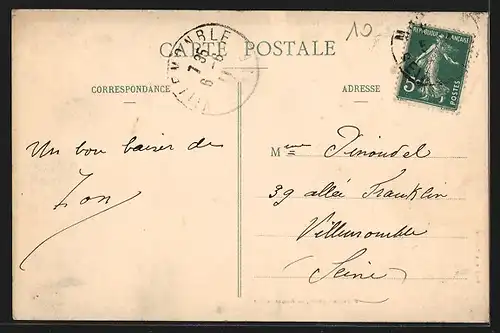 10
CARTE POSTALE
CORRESPONDANCE
ADRESSE
VILLEMOMBLE
7 35
6 - 6
11
RÉPUBLIQUE FRANÇAISE
5
POSTES
Un bon baiser de
Zon
Mme Pinondel
39 allée Franklin
Villemomble
Seine